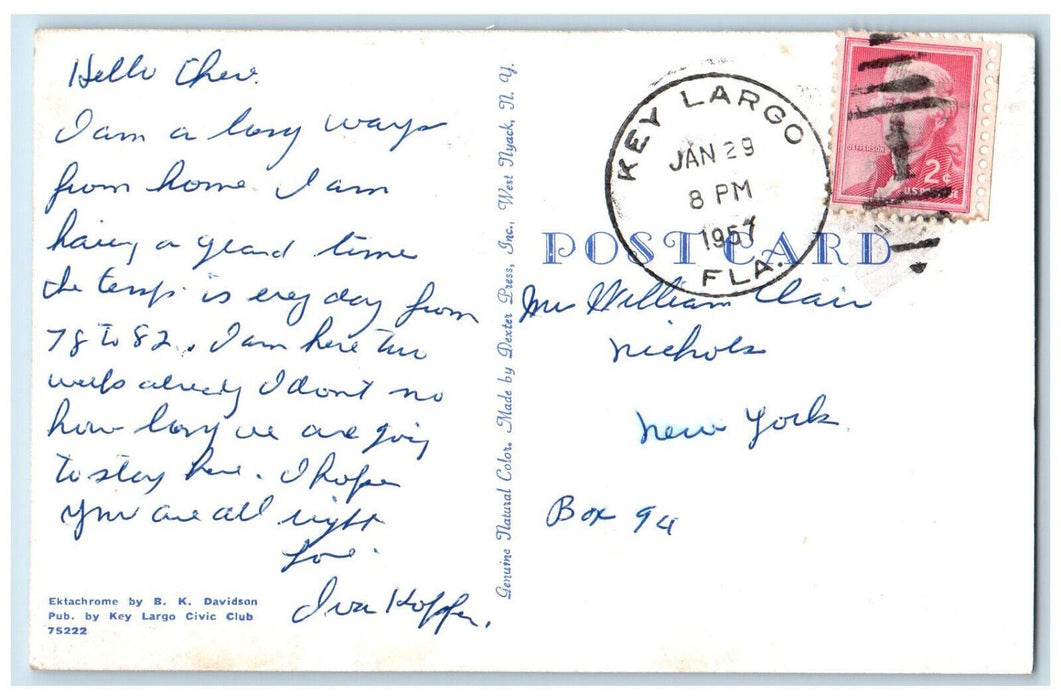 Hello Chev.
I am a long ways
from home. I am
having a grand time
the temp. is every day from
78 to 82. I am here two
weeks already I dont no
how long we are going
to stay here. I hope
you are all right
Love.
Iva Hoffer.
Ektachrome by B. K. Davidson
Pub. by Key Largo Civic Club
75222
Genuine Natural Color. Made by Dexter Press, Inc., West Nyack, N. Y.
KEY LARGO
JAN 29
8 PM
1957
FLA.
JEFFERSON
2¢
U.S. POSTAGE
POST CARD
Mr William Clair
Nichols
New York.
Box 94